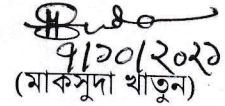 ৭/১০/২০২১
(মাকসুদা খাতুন)